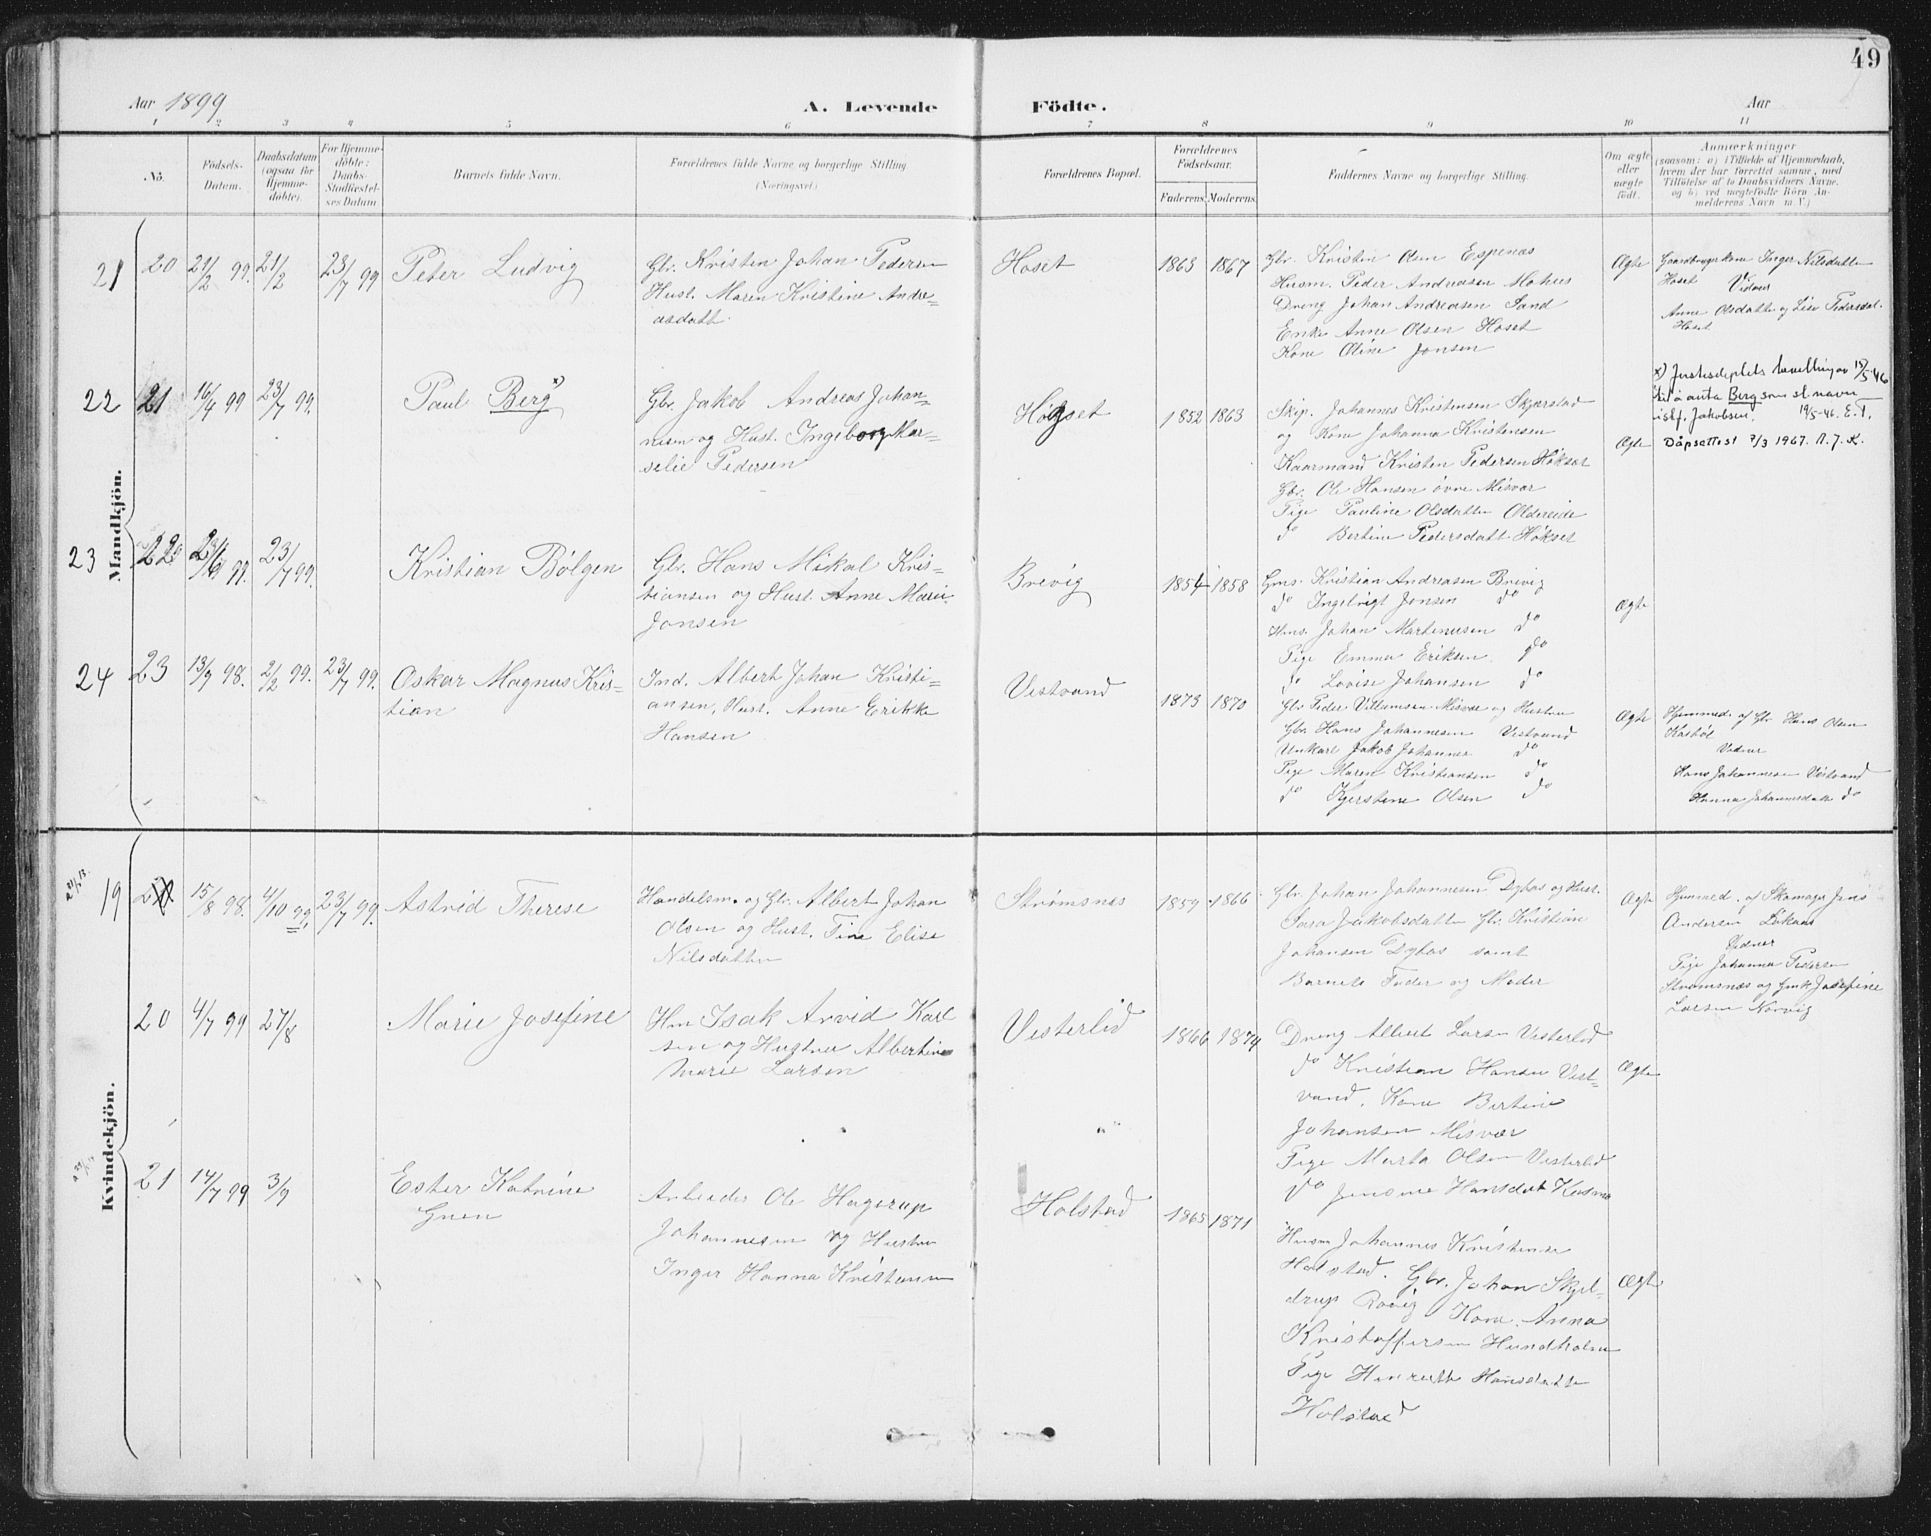 49
Aar 1899
A. Levende Födte.
Aar
1 2 3 4 5 6 7 8 9 10 11
No.
Födsels-Datum.
Daabsdatum (ogsaa for Hjemme-döbte).
For Hjemme-döbte: Daabs-Stadfæstel-ses Datum
Barnets fulde Navn.
Forældrenes fulde Navne og borgerlige Stilling
(Næringsvei.)
Forældrenes Bopæl.
Forældrenes Födselsaar.
Faderens. Moderens.
Faddernes Navne og borgerlige Stilling.
Om ægte eller uægte födt.
Anmærkninger
(saasom: a) i Tilfælde af Hjemmedaab,
hvem der har forrettet samme, med
Tilföielse af to Daabsvidners Navne,
og b) ved uægtefödte Börn An-
melderens Navn m. V.)
Mandkjön.
21 20 21/2 99. 21/2 23/7 99 Peter Ludvig
Gbr. Kristen Johan Pedersen
Hust. Maren Kristine Andre-
asdatt.
Hoset 1863 1867
Gbr. Kristen Olsen Espenæs
Husm. Peder Andreasen Mohus
Dreng Johan Andreasen Sand
Enke Anne Olsen Hoset
Kone Oline Jonsen
Ægte
Gaardbrugerkone Inger Nilsdatter
Hoset Vidner
Anne Olsdatter og Lise Pedersdat.
Hoset
22 21 16/4 99 23/7 99. Paul Berg x)
Gbr. Jakob Andreas Johan-
nesen og Hust. Ingeborg Mar-
selie Pedersen
Høgset 1852 1863
Skip. Johannes Kristensen Skjærstad
og Kone Johanna Kristensen
Kaarmand Kristen Pedersen Høkset
Gbr. Ole Hansen øvre Misvær
Pige Pauline Olsdatter Oldereide
do Bertine Pedersdatt Høkset
Ægte
x) Justisdeptets bevilling av 15/5-46
til å anta Berg som sl.navn
istf. Jakobsen. 19/5-46. E.T.
Dåpsattest 7/3 1967. N.J.K.
23 22 99. 23/7 99. Kristian Bølgen
Gbr. Hans Mikal Kris-
tiansen og Hust. Anne Marie
Jonsen
Brevig 1854 1858
Gms. Kristian Andreasen Brevig
do Ingebrigt Jonsen do
Hms. Johan Martinusen do
Pige Emma Eriksen do
do Lovise Johansen do
Ægte
24 23 13/9 98. 2/2 99. 23/7 99. Oskar Magnus Kris-
tian
Ind. Albert Johan Kristi-
ansen, Hust. Anne Erikke
Hansen
Vestvand 1873 1870
Gbr Peder Villumsen Misvær og Hustru
Gbr. Hans Johannesen Vestvand
Unkarl Jakob Johannes do
Pige Maren Kristiansen do
do Kjerstine Olsen do
Ægte
Hjemmed. af Gbr Hans Olsen
Vidner
Hans Johannesen Vestvand
Hanna Johannesdatt do
Kvindekjön.
19 15/8 98. 4/10 99. 23/7 99. Astrid Therese
Handelsm. og Gbr. Albert Johan
Olsen og Hust. Tine Elise
Nilsdatter
Strømsnes 1859 1866
Gbr. Johan Johannesen Dybos og Hust.
Sara Jakobsdatter Gbr. Kristian
Johansen Dybos samt
Barnets Fader og Moder
Ægte
Hjemmed. af Skomager Jens
Andersen Løkaas
Vidner
Pige Johanna Pedersen
Strømsnæs og Gmk Josefine
Larsen Norvig
20 4/7 99 27/8 Marie Josefine
Hm Isak Arvid Karl
sen og Hustru Albertine
Marie Larsen
Vesterlid 1866 1874
Dreng Albert Larsen Vesterlid
do Kristian Hansen Vest-
vand, Kone Bertine
Johansen Misvær
Pige Marta Olsen Vesterlid
do Jensine Hansdat Kusmo
Ægte
21 14/7 99 3/9 Ester Katrine
Gren
Arbeider Ole Hagerup
Johannesen og Hustru
Inger Hanna Kristensen
Holstad 1865 1871
Husm Johannes Kristensen
Holstad. Gbr. Johan Skjel-
drup Kone. Anna
Kristoffersen Hundholm
Pige Henriette Hansdatte
Holstad
Ægte